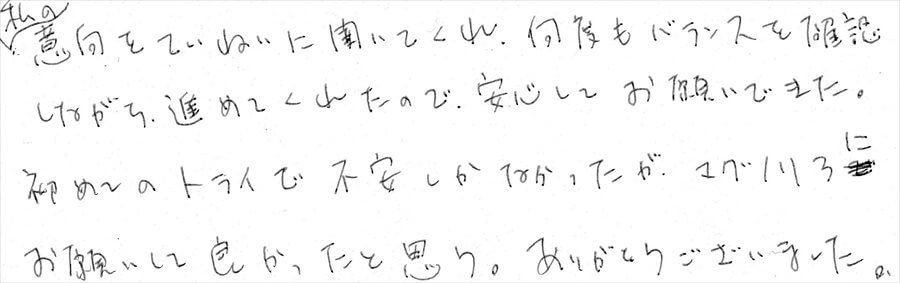 私の
意向をていねいに聞いてくれ、何度もバランスを確認
しながら、進めてくれたので、安心してお願いできた。
初めてのトライで不安しかなかったが、に
お願いして良かったと思う。ありがとうございました。